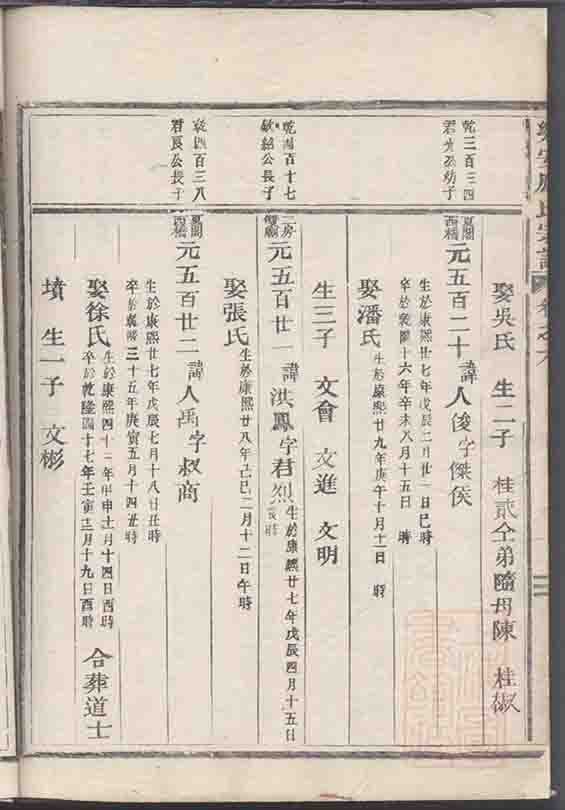 娶吳氏 生二子 桂貳仝弟隨母陳 桂椒
乾三百三四
夏閣西橋 元五百二十 諱人俊字傑侯
生於康熙廿七年戊辰二月廿一日巳時
卒於乾隆十六年辛未八月十五日 時
娶潘氏 生於康熙廿九年庚午十月十一日 時
生三子 文會 文進 文明
乾四百十七
敏紹公長子
二房 元五百廿一 諱洪鳳字君烈 生於康熙廿七年戊辰四月十五日 時
娶張氏 生於康熙廿八年己巳二月十二日午時
乾四百三八
君良公長子
夏閣西橋 元五百廿二 諱人禹字叔商
生於康熙廿七年戊辰七月十八日丑時
卒於乾隆三十五年庚寅五月十四丑時
娶徐氏 生於康熙四十三年甲申十月十四日酉時
卒於乾隆四十七年壬寅十二月十九日酉時 合葬道士
墳 生一子 文彬